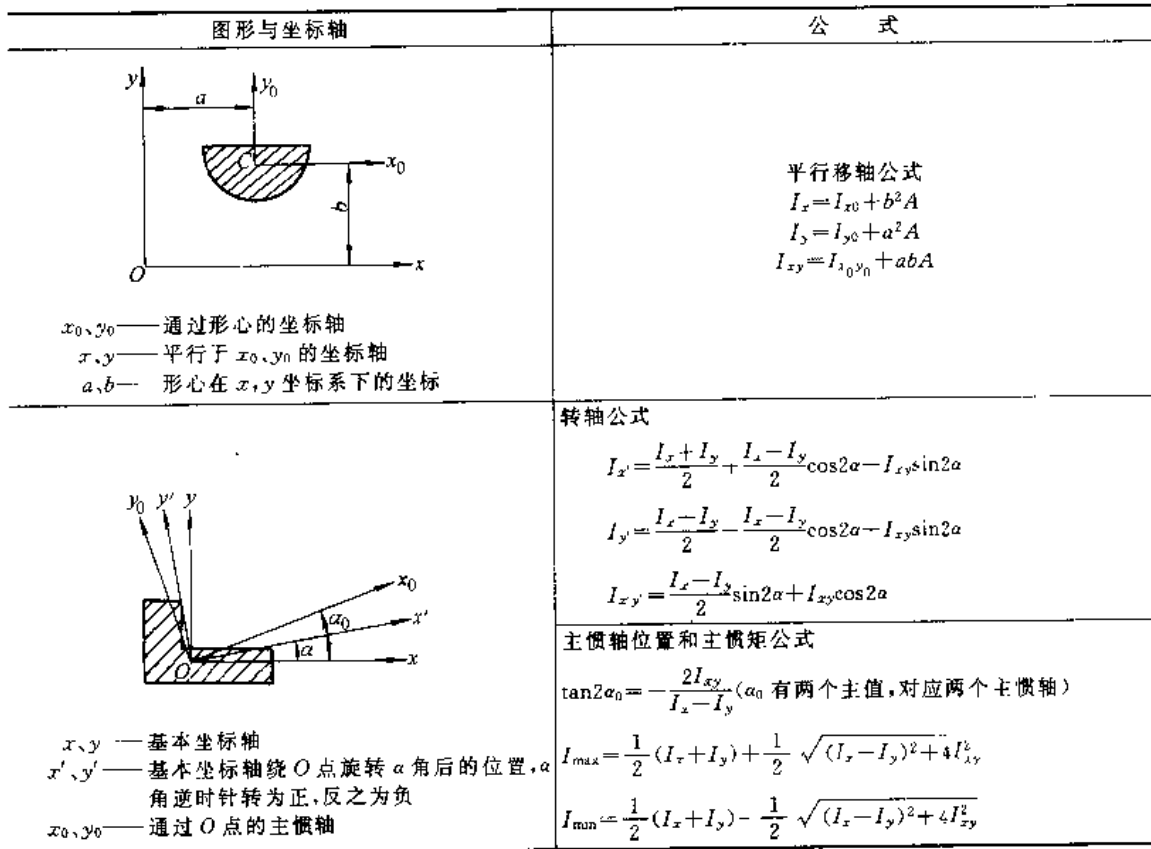 图形与坐标轴
公 式
y
y₀
a
C
x₀
b
O
x
x₀、y₀——通过形心的坐标轴
x、y——平行于 x₀、y₀ 的坐标轴
a、b— 形心在 x,y 坐标系下的坐标
平行移轴公式
I_x=I_{x0}+b²A
I_y=I_{y0}+a²A
I_{xy}=I_{x₀y₀}+abA
y₀ y′ y
x₀
x′
α₀
α
x
O
x、y —基本坐标轴
x′、y′——基本坐标轴绕 O 点旋转 α 角后的位置,α
角逆时针转为正,反之为负
x₀、y₀——通过 O 点的主惯轴
转轴公式
I_{x′}=\frac{I_x+I_y}{2}+\frac{I_x-I_y}{2}cos2α-I_{xy}sin2α
I_{y′}=\frac{I_x-I_y}{2}-\frac{I_x-I_y}{2}cos2α-I_{xy}sin2α
I_{x′y′}=\frac{I_x-I_y}{2}sin2α+I_{xy}cos2α
主惯轴位置和主惯矩公式
tan2α₀=-\frac{2I_{xy}}{I_x-I_y}(α₀ 有两个主值,对应两个主惯轴)
I_{max}=\frac{1}{2}(I_x+I_y)+\frac{1}{2}\sqrt{(I_x-I_y)²+4I²_{xy}}
I_{min}=\frac{1}{2}(I_x+I_y)-\frac{1}{2}\sqrt{(I_x-I_y)²+4I²_{xy}}